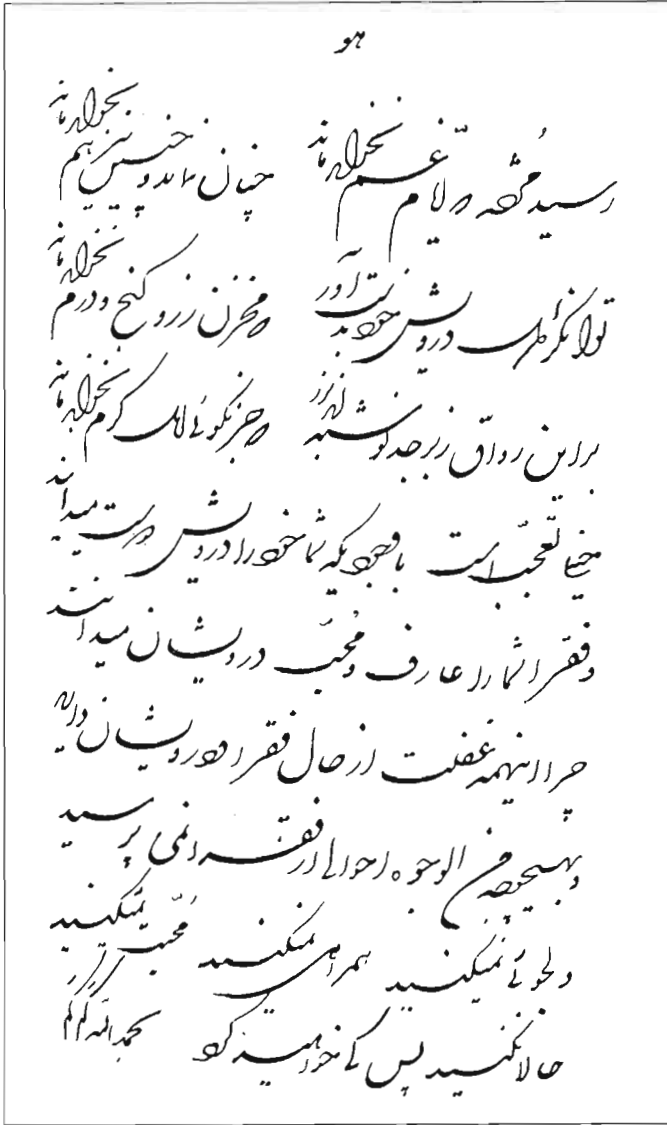 هو
رسید مژده که ایام غم نخواهد ماند چنان نماند و چنین نیز هم نخواهد ماند
توانگرا دل درویش خود بدست آور که مخزن زر و گنج و درم نخواهد ماند
براین رواق زبرجد نوشته‌اند بزر که جز نکوئی اهل کرم نخواهد ماند
خیلی تعجب است با وجودیکه شما خود را درویش پرست میدانید
و فقرا شما را عارف و محب درویشان میدانند
چرا اینهمه غفلت از حال فقرا و درویشان دارید
و بهیچوجه من الوجوه احوالی از فقرا نمی پرسید
دلجوئی نمیکنید همراهی نمیکنید محبت نمیکنید
حالا نکنید پس کی خواهید کرد